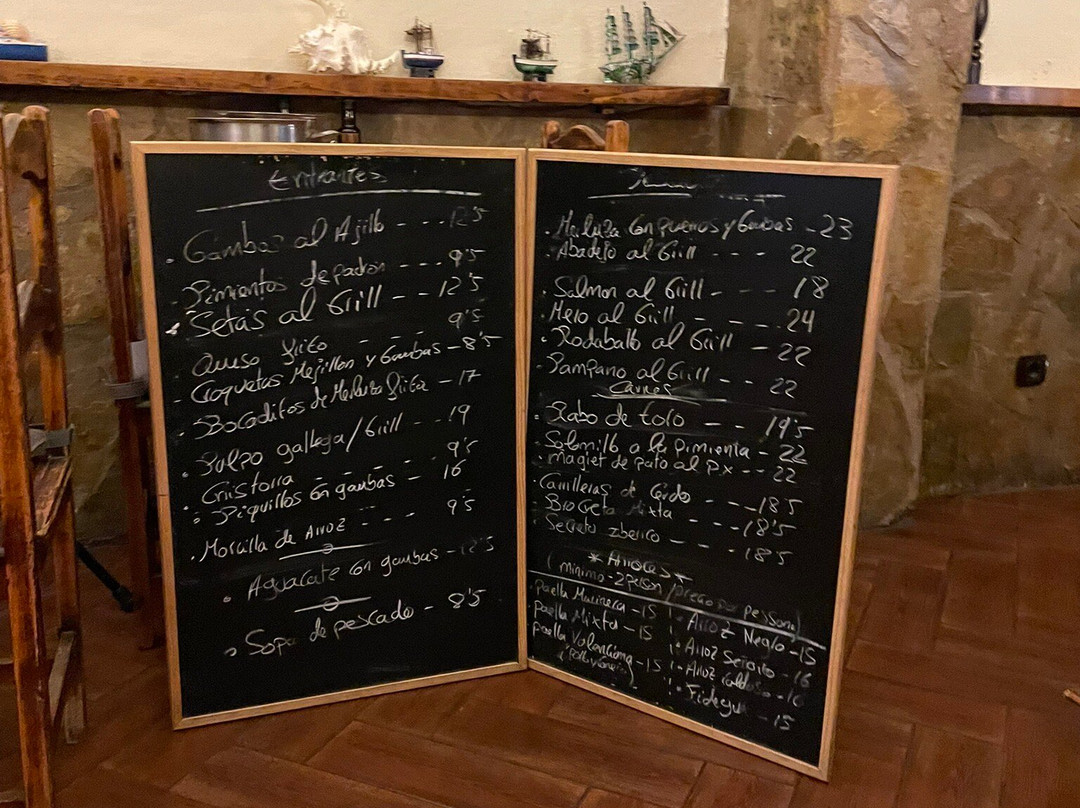 Entrantes
. Gambas al Ajillo - - - 12'5
- Pimientos de padron - - - 9'5
- Setas al Grill - - 12'5
- Queso frito - - - 9'5
- Croquetas Mejillon y Gambas - 8'5
- Bocaditos de Merluza frita - 17
- Pulpo gallega/Grill - - 19
- Chistorra - - - 9'5
- Piquillos con gambas - 16
. Morcilla de Arroz - - - 9'5
. Aguacate con gambas - 12'5
. Sopa de pescado - 8'5
. Merluza con puerros y Gambas - 23
. Abadejo al Grill - - - 22
. Salmon al Grill - - - 18
. Mero al Grill - - - 24
. Rodaballo al Grill - - 22
. Pampano al Grill - - 22
Carnes
. Rabo de toro - - 19'5
. Solomillo a la pimienta - 22
. magret de pato al Px - - 22
. Carrilleras de Cerdo - - - 18'5
. Brocheta Mixta - - - 18'5
. Secreto iberico - - - 18'5
* Arroces *
(minimo - 2 person / precio por persona)
. paella Marinera - 15
. paella Mixta - 15
. paella Valenciana - 15
- Arroz Negro - 15
- Arroz Señorito - 16
- Arroz Caldoso - 16
- Fidegua - 15